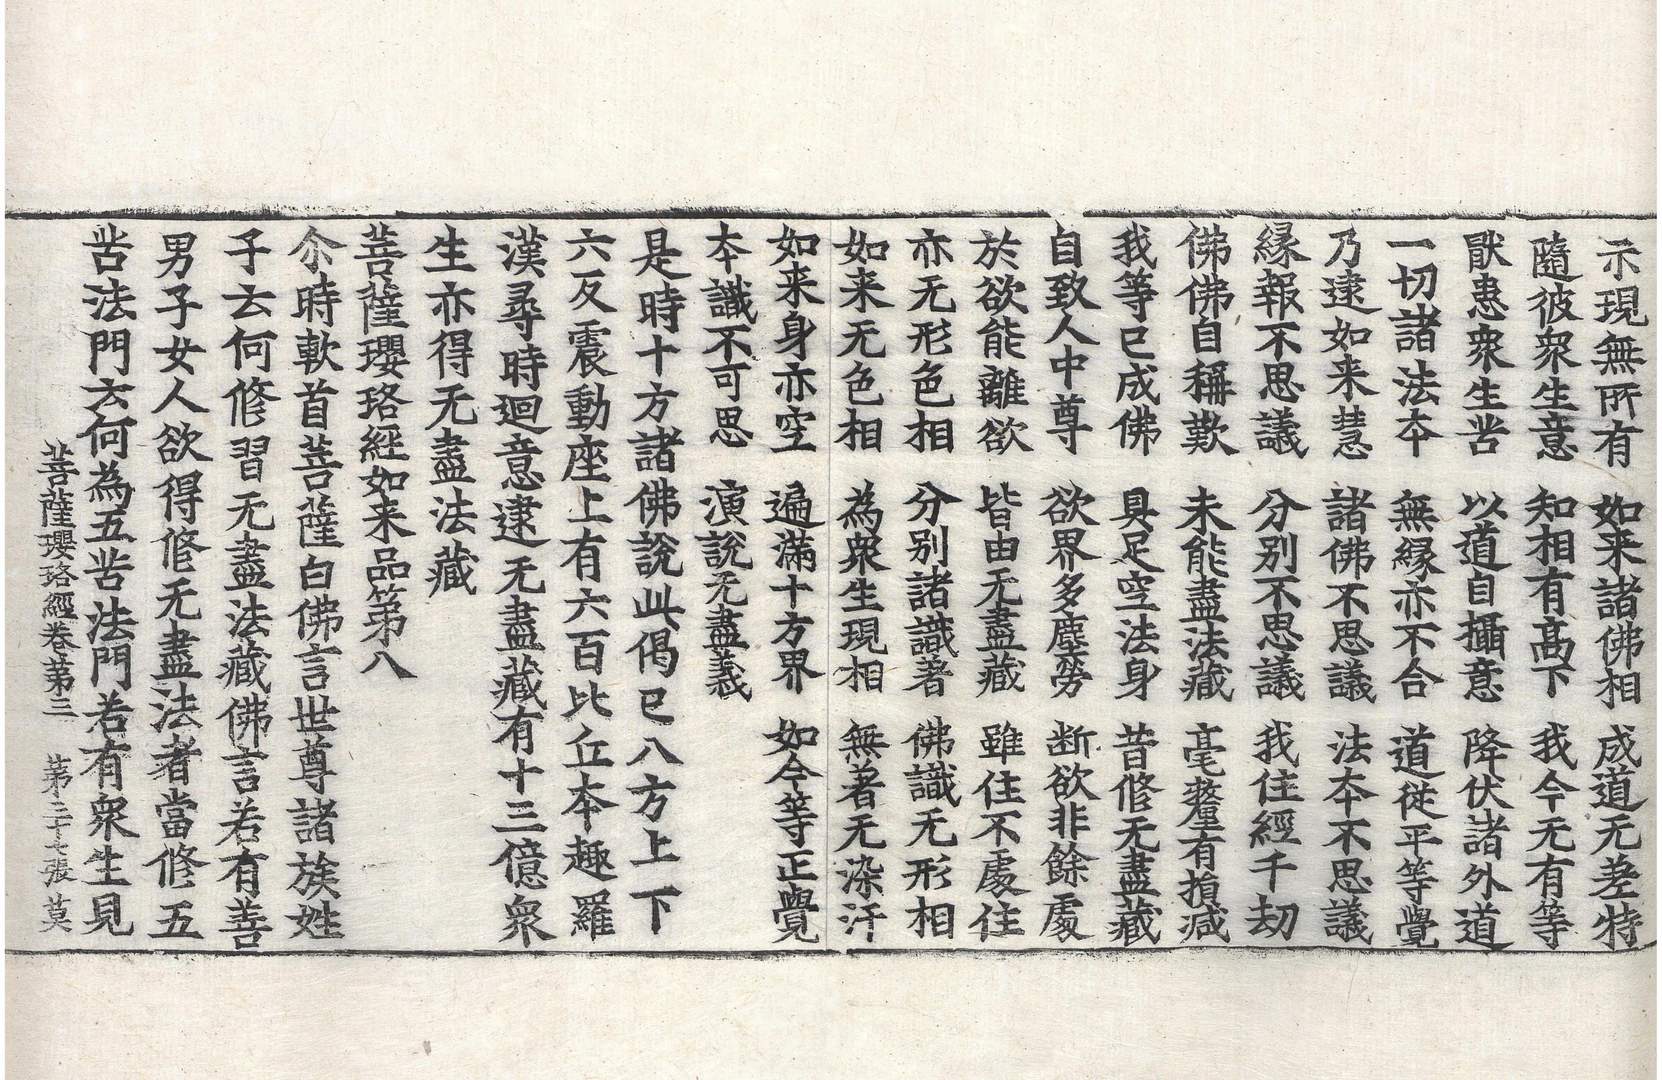 示現無所有　如来諸佛相　成道无差特
隨彼衆生意　知相有髙下　我今无有等
猒患衆生苦　以道自攝意　降伏諸外道
一切諸法夲　無緣亦不合　道從平等覺
乃逮如来慧　諸佛不思議　法夲不思議
緣報不思議　分別不思議　我住經千劫
佛佛自稱歎　未能盡法藏　毫釐有損减
我等已成佛　具足空法身　昔修无盡藏
自致人中尊　欲界多塵勞　断欲非餘處
於欲能離欲　皆由无盡藏　雖住不處住
亦无形色相　分別諸識著　佛識无形相
如来无色相　為衆生現相　無著无染汙
如来身亦空　遍滿十方界　如今等正覺
夲識不可思　演說无盡義
是時十方諸佛說此偈已八方上下
六反震動座上有六百比丘夲趣羅
漢尋時迴意逮无盡藏有十三億衆
生亦得无盡法藏
菩薩瓔珞經如来品第八
尒時軟首菩薩白佛言世尊諸族姓
子云何修習无盡法藏佛言若有善
男子女人欲得修无盡法者當修五
苦法門云何為五苦法門若有衆生見
菩薩瓔珞經卷第三　第二十七張　莫